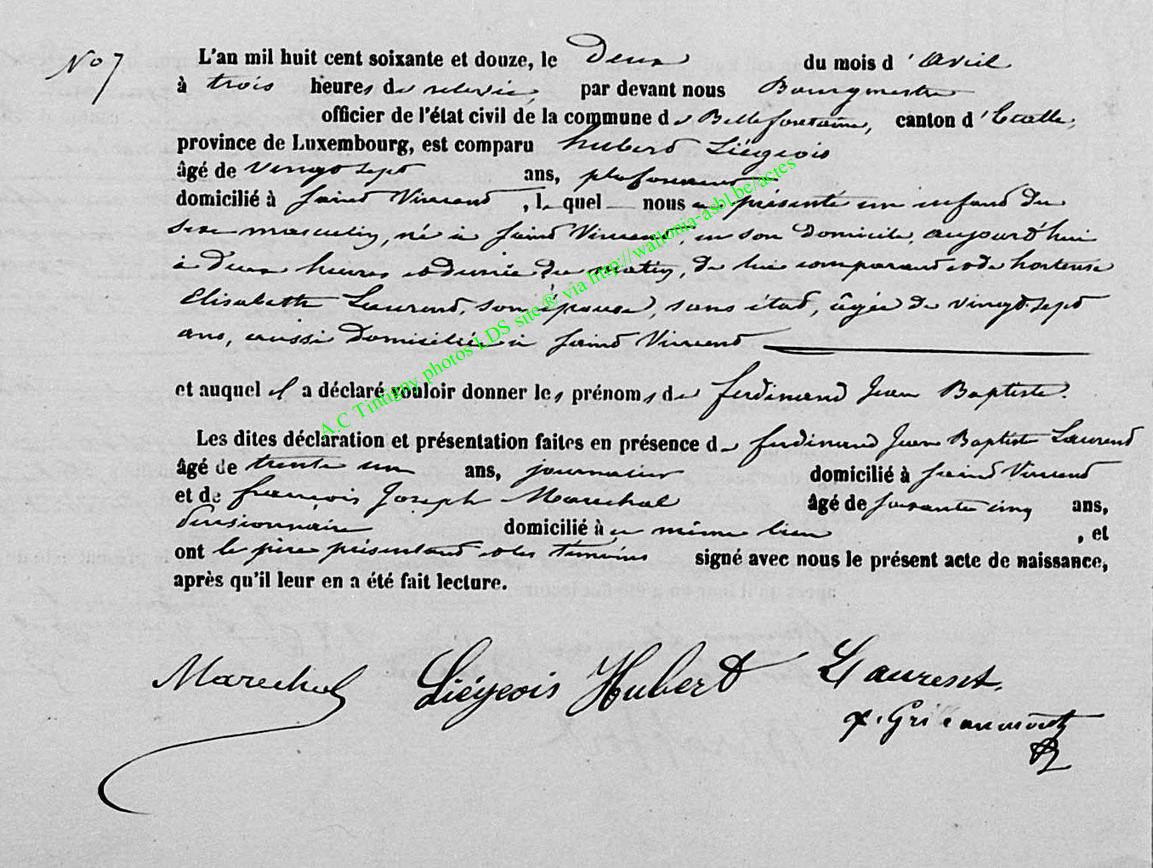 No 7
L'an mil huit cent soixante et douze, le deux du mois d'avril
à trois heures de relevée, par devant nous Bourgmestre
officier de l'état civil de la commune de Bellefontaine, canton d'Etalle,
province de Luxembourg, est comparu hubert Liégeois
âgé de vingt sept ans, plafonneur
domicilié à Saint Vincent, lequel nous a présenté un enfant du
sexe masculin, né à Saint Vincent, en son domicile, aujourd'hui
à deux heures et demie du matin, de lui comparant et de hortense
Elisabeth Laurent, son épouse, sans état, âgée de vingt sept
ans, aussi domiciliée à Saint Vincent
et auquel il a déclaré vouloir donner les prénoms de ferdinand Jean Baptiste.
Les dites déclaration et présentation faites en présence de ferdinand Jean Baptiste Laurent
âgé de trente un ans, journalier domicilié à Saint Vincent
et de françois Joseph Marechal âgé de soixante cinq ans,
pensionnaire domicilié à même lieu, et
ont le père présentant et les témoins signé avec nous le présent acte de naissance,
après qu'il leur en a été fait lecture.
Marechal Liégeois Hubert Laurent.
A.C Tintigny photos LDS site® via http://wallonia-asbl.be/actes